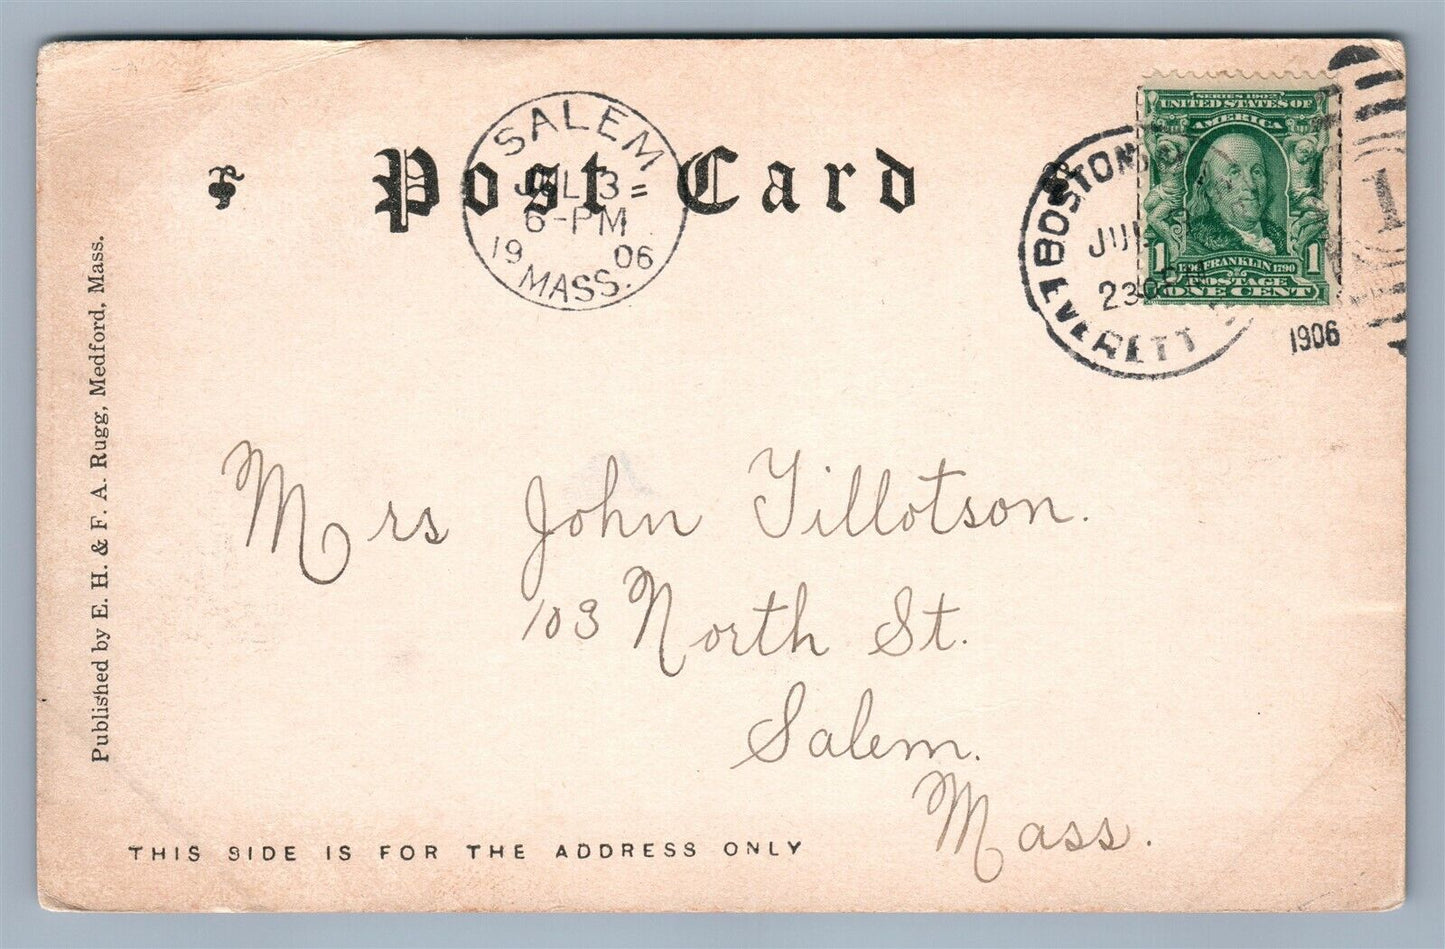 Post Card
SALEM
JUL 3
6-PM
19 06
MASS.
BOSTON
JUL
EVERETT
1906
1
SERIES 1902
UNITED STATES OF
AMERICA
1 1
FRANKLIN 1790
POSTAGE
ONE CENT
Published by E. H. & F. A. Rugg, Medford, Mass.
Mrs John Tillotson.
103 North St.
Salem.
Mass.
THIS SIDE IS FOR THE ADDRESS ONLY